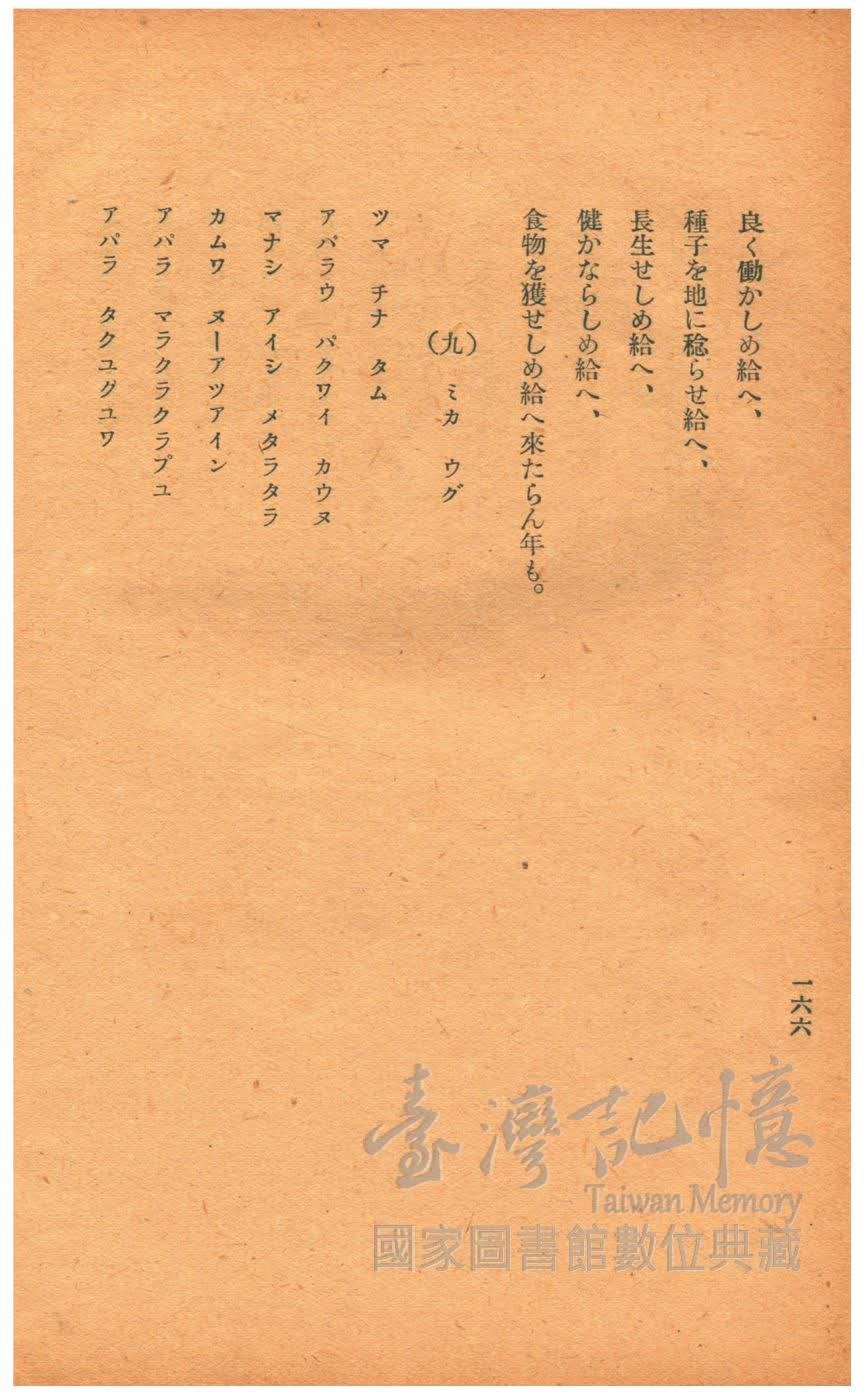 良く働かしめ給へ、
種子を地に稔らせ給へ、
長生せしめ給へ、
健かならしめ給へ、
食物を獲せしめ給へ來たらん年も。
(九) ミカ ウグ
ツマ チナ タム
アバラウ パクワイ カウヌ
マナシ アイシ メタラタラ
カムワ ヌーアツアイン
アパラ マラクラクラプユ
アパラ タクユグユワ
一六六
臺灣記憶
Taiwan Memory
國家圖書館數位典藏